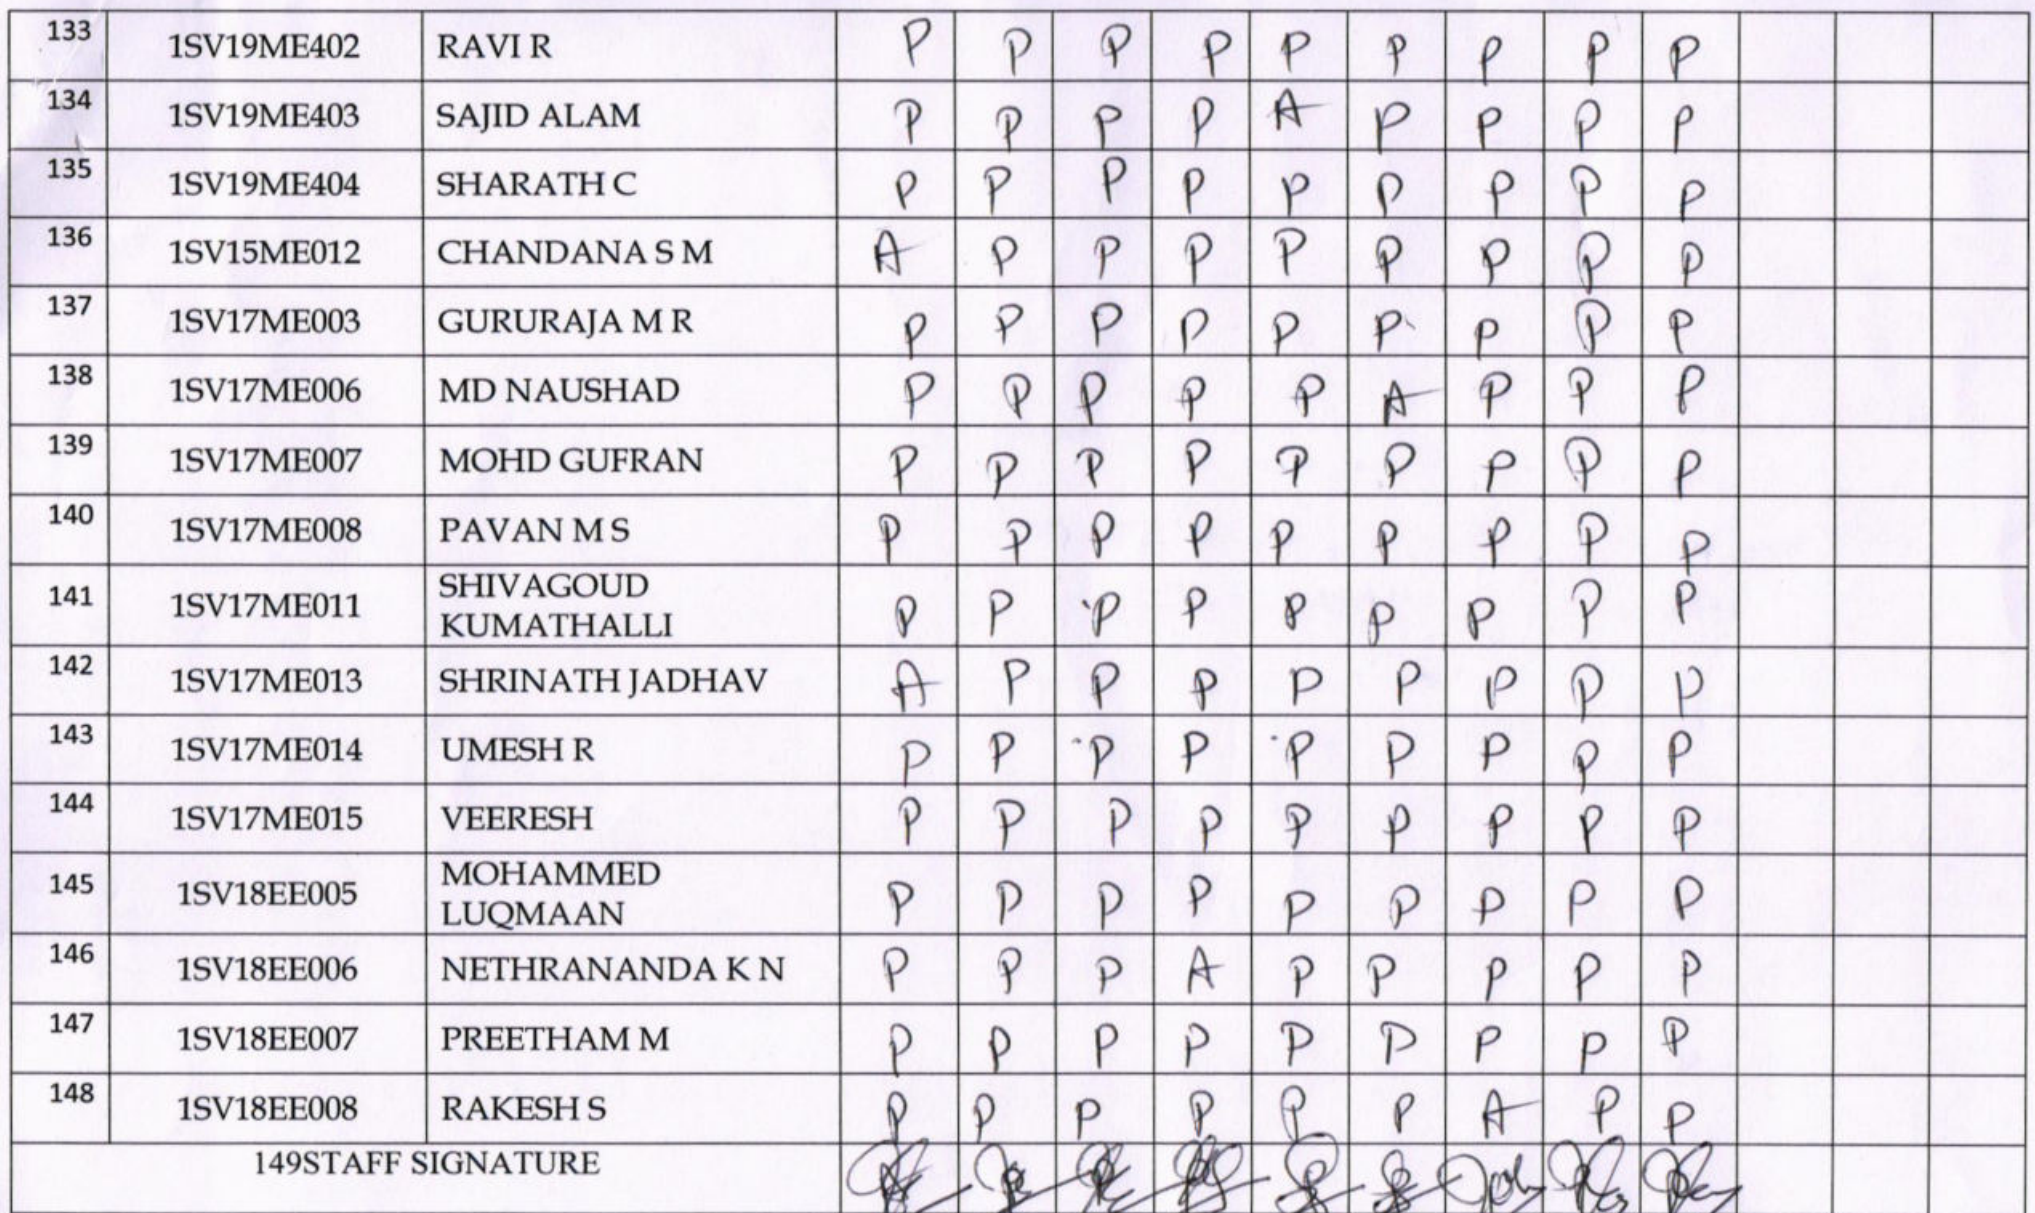 133 1SV19ME402 RAVI R P P P P P P P P P
134 1SV19ME403 SAJID ALAM P P P P A P P P P
135 1SV19ME404 SHARATH C P P P P P P P P P
136 1SV15ME012 CHANDANA S M A P P P P P P P P
137 1SV17ME003 GURURAJA M R P P P P P P P P P
138 1SV17ME006 MD NAUSHAD P P P P P A P P P
139 1SV17ME007 MOHD GUFRAN P P P P P P P P P
140 1SV17ME008 PAVAN M S P P P P P P P P P
141 1SV17ME011 SHIVAGOUD
KUMATHALLI P P P P P P P P P
142 1SV17ME013 SHRINATH JADHAV A P P P P P P P P
143 1SV17ME014 UMESH R P P P P P P P P P
144 1SV17ME015 VEERESH P P P P P P P P P
145 1SV18EE005 MOHAMMED
LUQMAAN P P P P P P P P P
146 1SV18EE006 NETHRANANDA K N P P P A P P P P P
147 1SV18EE007 PREETHAM M P P P P P P P P P
148 1SV18EE008 RAKESH S P P P P P P A P P
149STAFF SIGNATURE